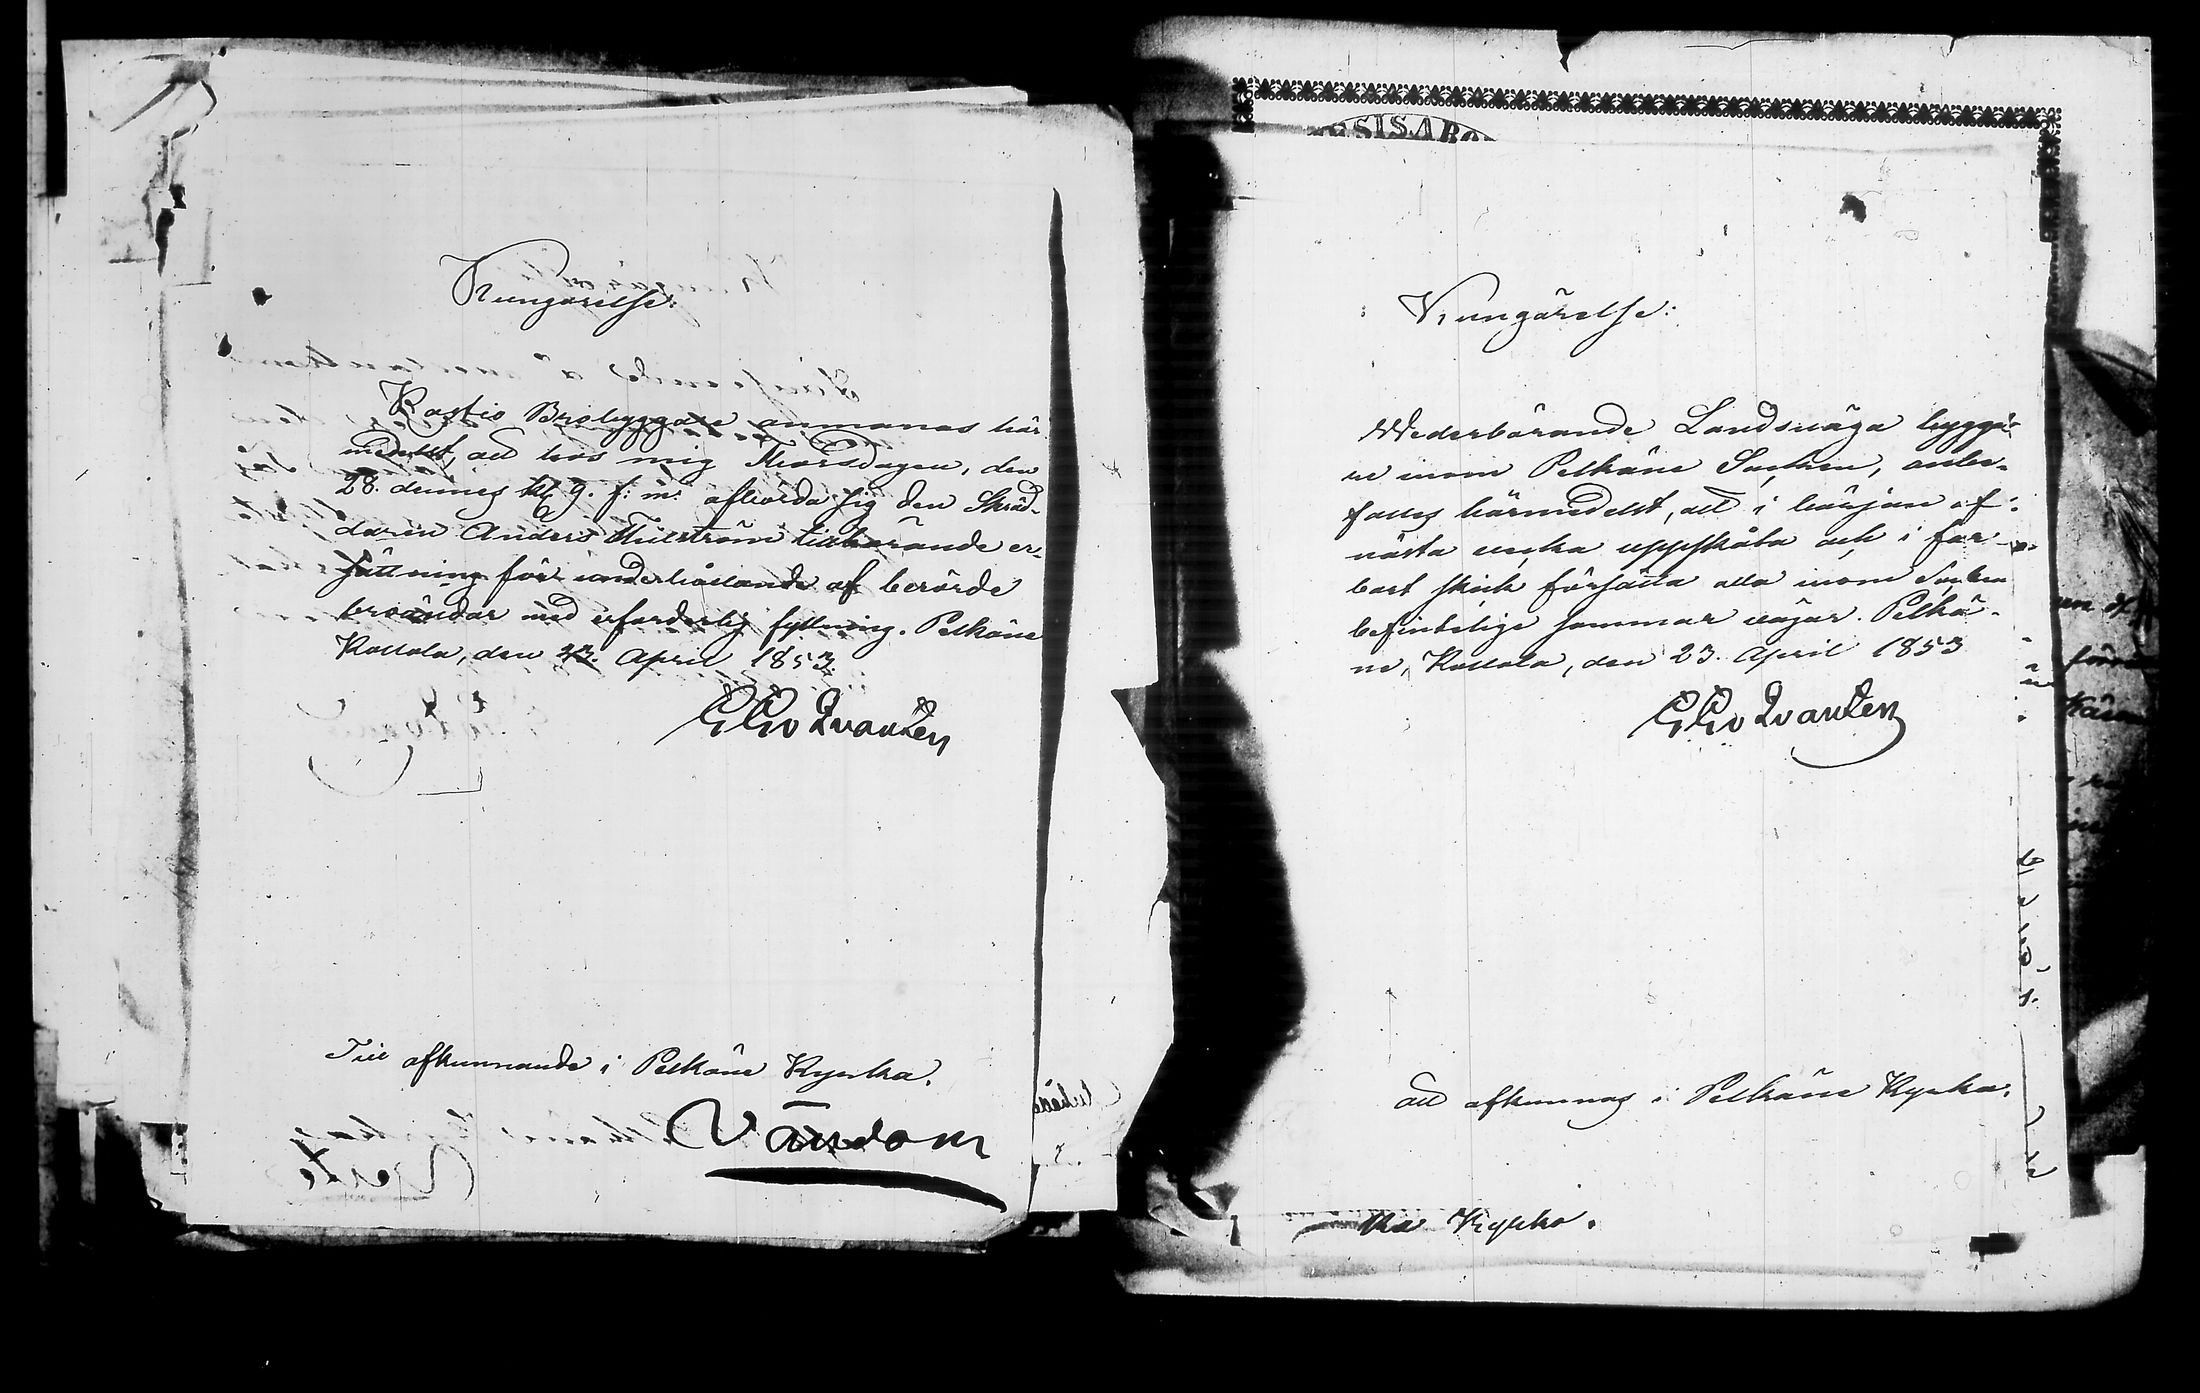 Kungörelse:
Kostio Brobyggare anmanas här
medelst, att hos mig Thorsdagen, den
28. dennes kl 9. f: m: afhörda sig den Skräd-
daren Anders Thilström tillkommande er-
sättning för underhållande af berörde
broändar med erforderlig fyllning. Pelkäne
Kollola, den 23. April 1853.
G Gv Qvanten
Till afkunnande i Pelkäne Kyrka.
Vändom
Kungörelse:
Wederbörande Landsväga byggа-
re inom Pelkäne Socken, anbe-
falles härmedelst, att i början af
nästa vecka uppskåta och i far-
bart skick försätta alla inom Socken
befintelige sommar vägar. Pelkä-
ne, Kollola, den 23. April 1853
G Gv Qvanten
att afkunnas i Pelkäne Kyrka.
ka Kyrka.